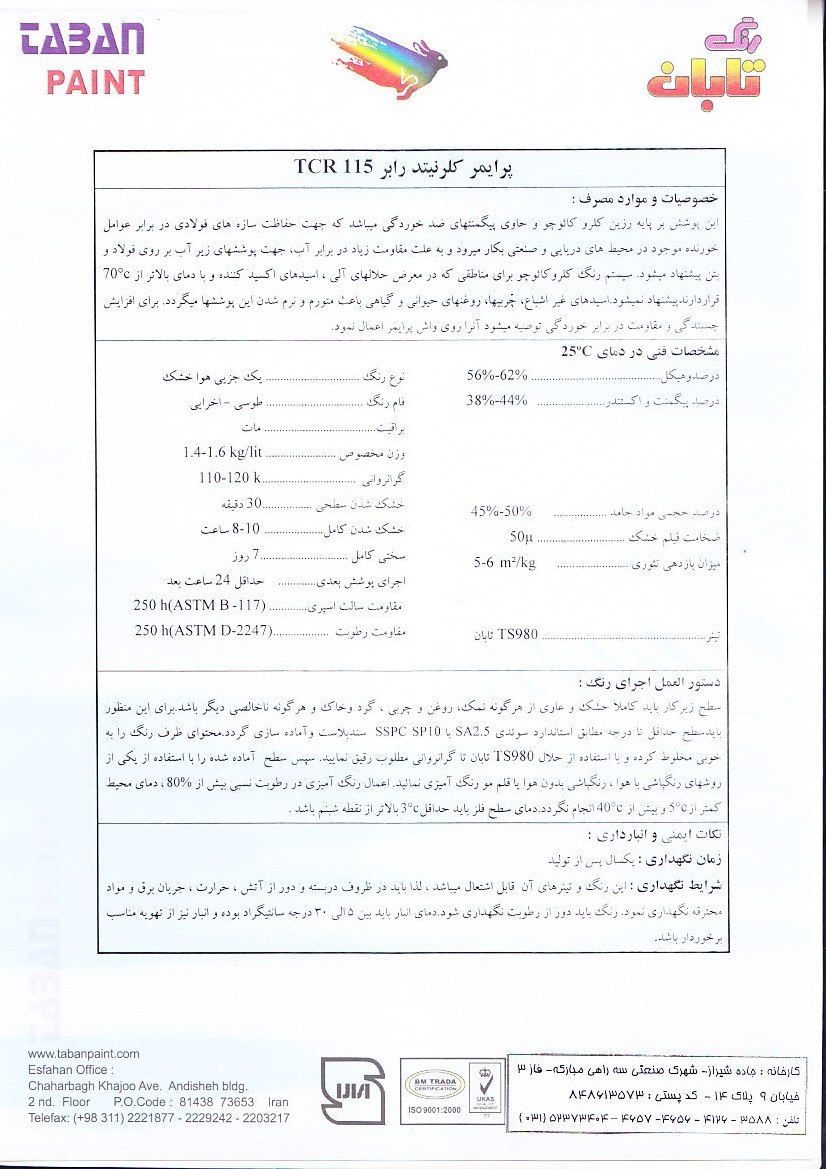 TABAN
PAINT
رنگ
تابان
پرایمر کلرنیتد رابر TCR 115
خصوصیات و موارد مصرف :
این پوشش بر پایه رزین کلرو کائوچو و حاوی پیگمنتهای ضد خوردگی میباشد که جهت حفاظت سازه های فولادی در برابر عوامل
خورنده موجود در محیط های دریایی و صنعتی بکار میرود و به علت مقاومت زیاد در برابر آب، جهت پوششهای زیر آب بر روی فولاد و
بتن پیشنهاد میشود. سیستم رنگ کلروکائوچو برای مناطقی که در معرض حلالهای آلی ، اسیدهای اکسید کننده و با دمای بالاتر از 70°c
قراردارندپیشنهاد نمیشود.اسیدهای غیر اشباع، چربیها، روغنهای حیوانی و گیاهی باعث متورم و نرم شدن این پوششها میگردد. برای افزایش
چسبندگی و مقاومت در برابر خوردگی توصیه میشود آنرا روی واش پرایمر اعمال نمود.
مشخصات فنی در دمای 25°C
درصدوهیکل.................................. 56%-62%
نوع رنگ ......................... یک جزیی هوا خشک
درصد پیگمنت و اکستندر.................. 38%-44%
فام رنگ .......................... طوسی – اخرایی
براقیت.............................. مات
وزن مخصوص ................... 1.4-1.6 kg/lit
گرانروانی .........................110-120 k
درصد حجمی مواد جامد .............. 45%-50%
خشک شدن سطحی ..............30 دقیقه
ضخامت فیلم خشک ....................... 50µ
خشک شدن کامل................ 8-10 ساعت
میزان بازدهی تئوری ................... 5-6 m²/kg
سختی کامل ........................7 روز
اجرای پوشش بعدی........... حداقل 24 ساعت بعد
مقاومت سالت اسپری........... 250 h(ASTM B -117)
تینر............................................ TS980 تابان
مقاومت رطوبت ...............250 h(ASTM D-2247)
دستور العمل اجرای رنگ :
سطح زیرکار باید کاملا خشک و عاری از هرگونه نمک، روغن و چربی ، گرد وخاک و هرگونه ناخالصی دیگر باشد.برای این منظور
بایدسطح حداقل تا درجه مطابق استاندارد سوئدی SA2.5 یا SSPC SP10 سندبلاست وآماده سازی گردد.محتوای ظرف رنگ را به
خوبی مخلوط کرده و با استفاده از حلال TS980 تابان تا گرانروانی مطلوب رقیق نمایید. سپس سطح آماده شده را با استفاده از یکی از
روشهای رنگپاشی با هوا ، رنگپاشی بدون هوا یا قلم مو رنگ آمیزی نمائید. اعمال رنگ آمیزی در رطوبت نسبی بیش از 80% ، دمای محیط
کمتر از5°c و بیش از 40°c انجام نگردد.دمای سطح فلز باید حداقل3°c بالاتر از نقطه شبنم باشد .
نکات ایمنی و انبارداری :
زمان نگهداری : یکسال پس از تولید
شرایط نگهداری : این رنگ و تینرهای آن قابل اشتعال میباشد ، لذا باید در ظروف دربسته و دور از آتش ، حرارت ، جریان برق و مواد
محترقه نگهداری نمود. رنگ باید دور از رطوبت نگهداری شود.دمای انبار باید بین ۵ الی ۳۰ درجه سانتیگراد بوده و انبار نیز از تهویه مناسب
برخوردار باشد.
www.tabanpaint.com
Esfahan Office :
Chaharbagh Khajoo Ave. Andisheh bldg.
2 nd. Floor P.O.Code : 81438 73653 Iran
Telefax: (+98 311) 2221877 - 2229242 - 2203217
BM TRADA
CERTIFICATION
ISO 9001:2000
UKAS
QUALITY
MANAGEMENT
کارخانه : جاده شیراز- شهرک صنعتی سه راهی مبارکه- فاز ۳
خیابان ۹ پلاک ۱۴ - کد پستی : ۸۴۸۶۱۳۵۷۳
تلفن : ۳۵۸۸ - ۴۱۲۶ - ۴۶۵۶ - ۴۶۵۷ – ۵۲۳۷۳۴۰۴ (۰۳۱)